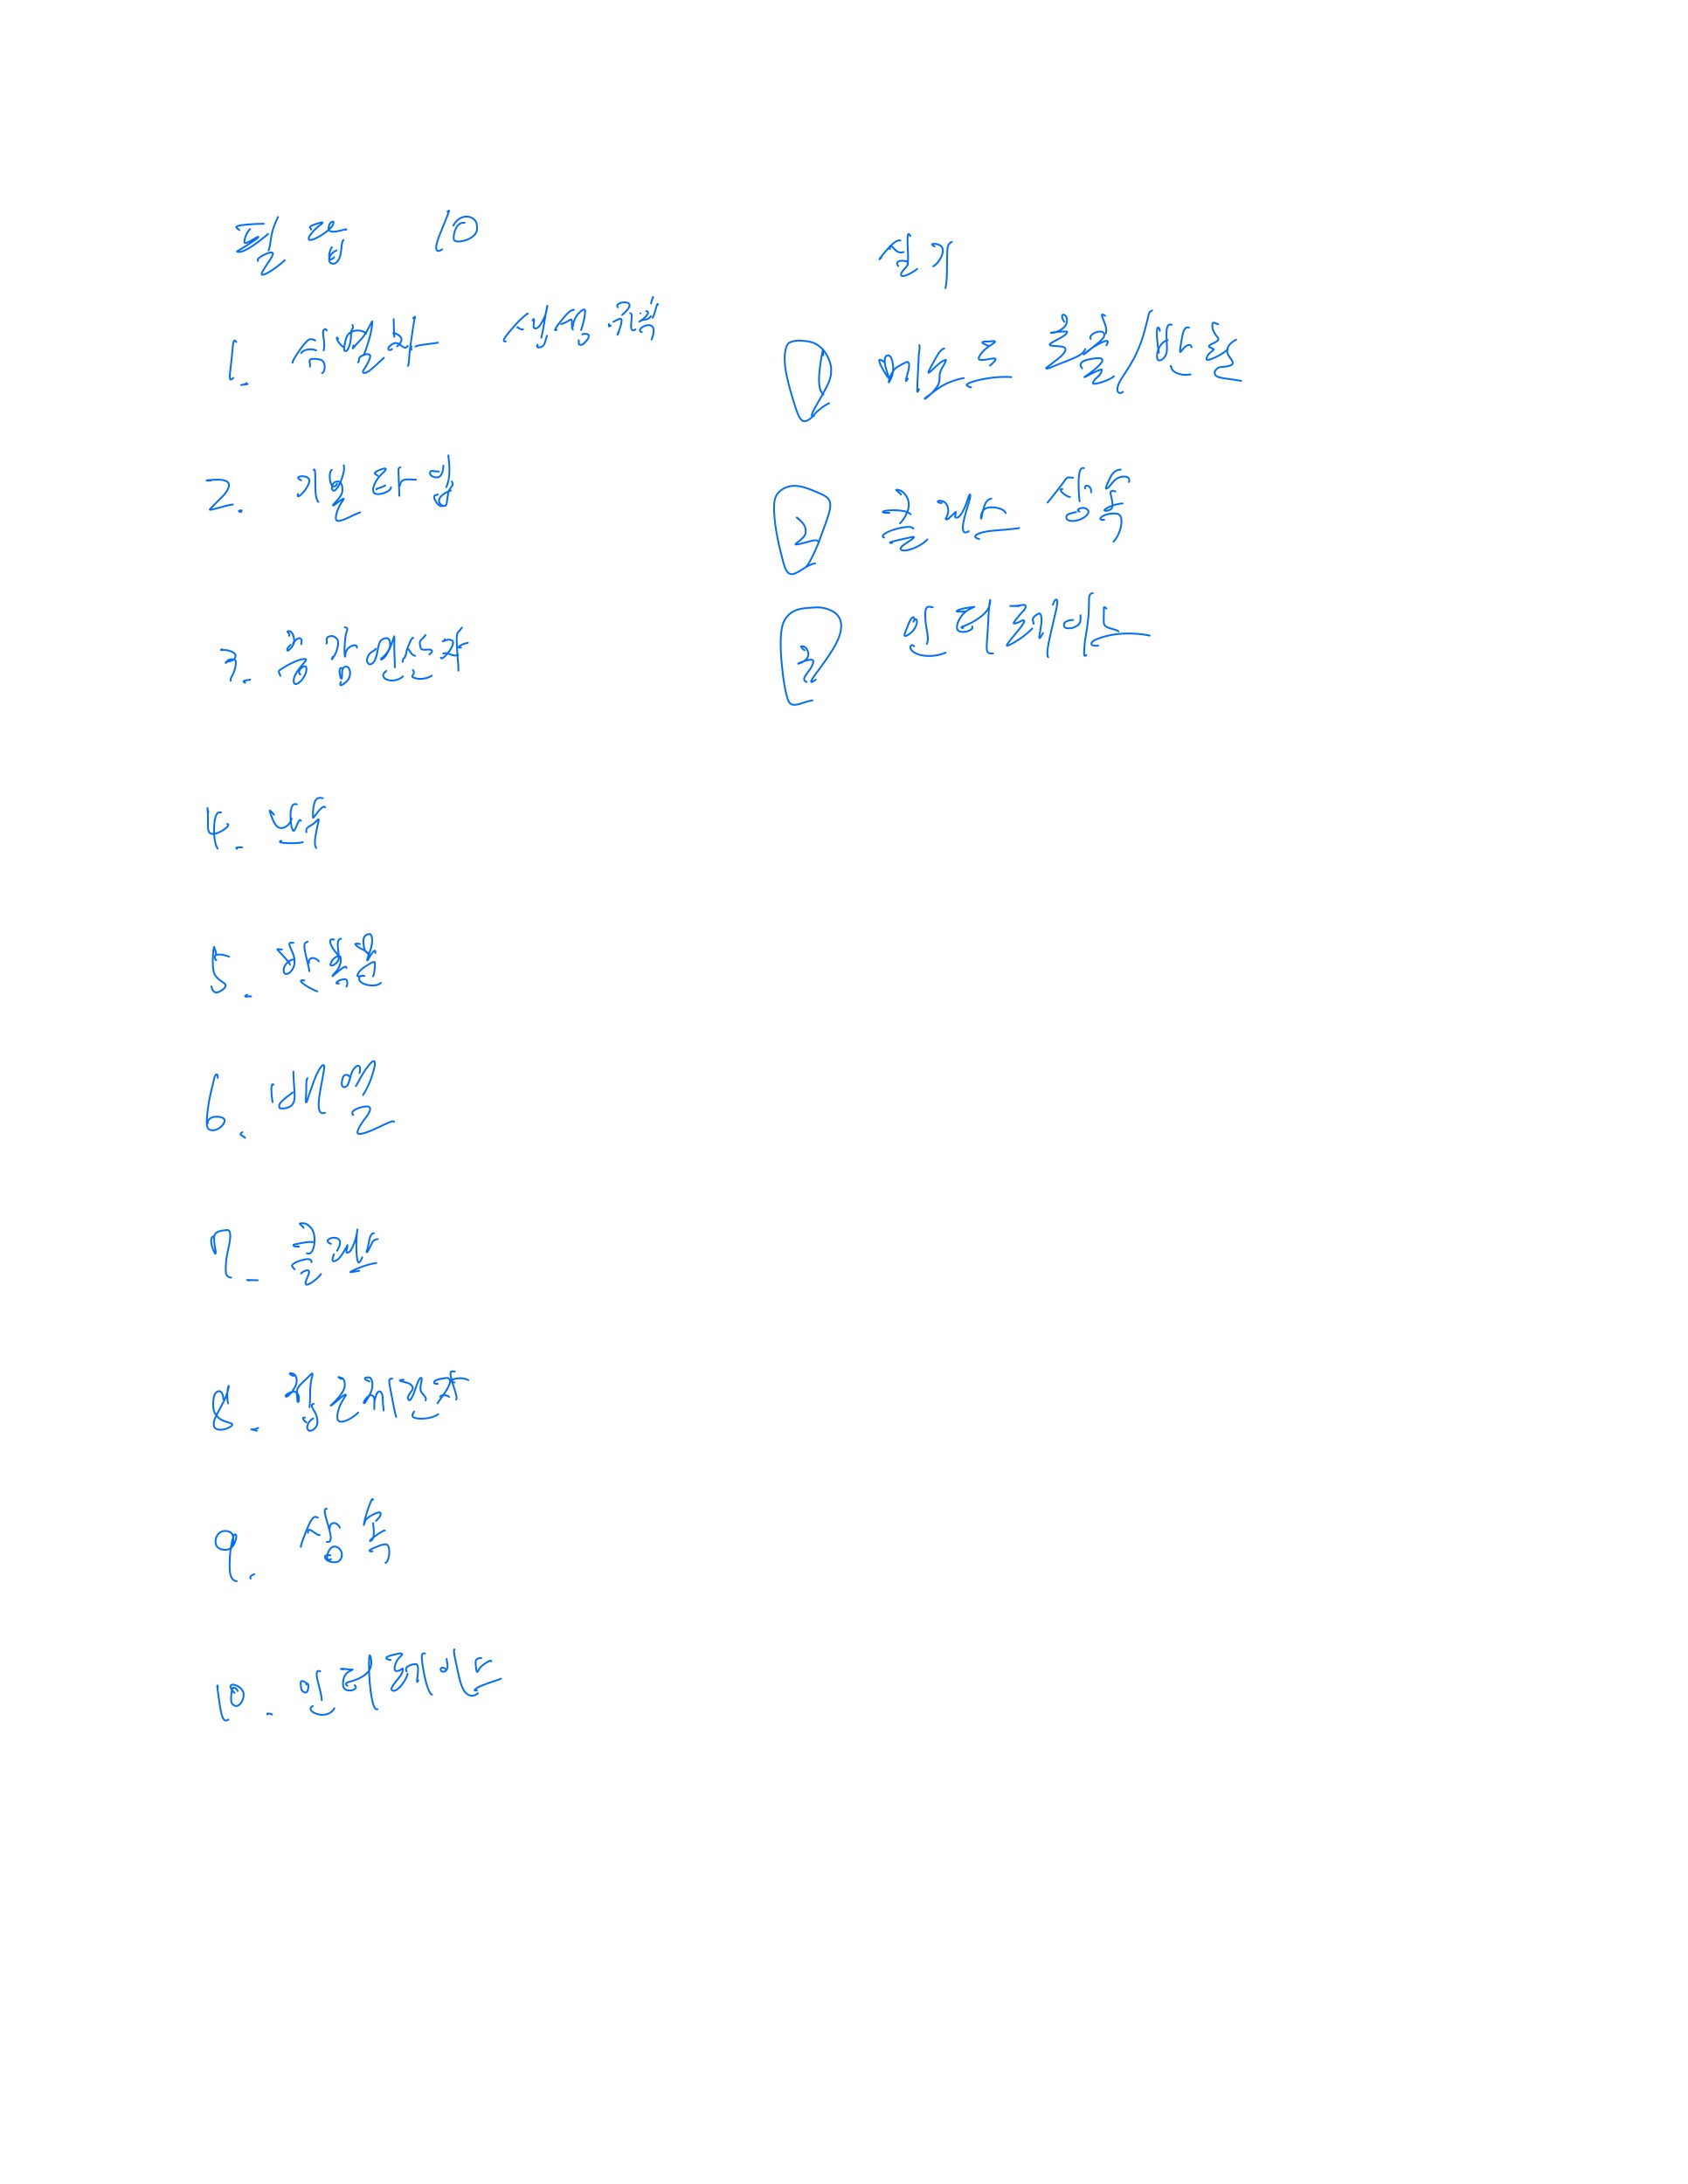 필답 10
1. 식별자 생성규칙
2. 기본타입
3. 증감연산자
4. 변수
5. 반복문
6. 배열
7. 클래스
8. 접근제한자
9. 상속
10. 인터페이스
실기
1 메소드 호출/반환
2 클래스 상속
3 인터페이스